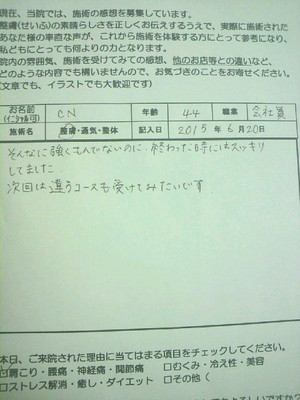 現在、当院では、施術の感想を募集しています。
整膚(せいふ)の素晴らしさを正しくお伝えするうえで、実際に施術された
あなた様の率直な声が、これから施術を体験する方にとって参考になり、
私どもにとっても何よりの力となります。
院内の雰囲気、施術を受けてみての感想、他のお店等との違いなど、
どのような内容でも構いませんので、お気づきのことをお寄せください。
(文章でも、イラストでも大歓迎です)
お名前(イニシャル可) CN 年齢 44 職業 会社員
施術名 整膚・通気・整体 記入日 2015年6月20日
そんなに強くもんでないのに、終わった時にはスッキリ
してました
次回は違うコースも受けてみたいです
本日、ご来院された理由に当てはまる項目をチェックしてください。
肩こり・腰痛・神経痛・関節痛 □むくみ・冷え性・美容
□ストレス解消・癒し・ダイエット □その他(